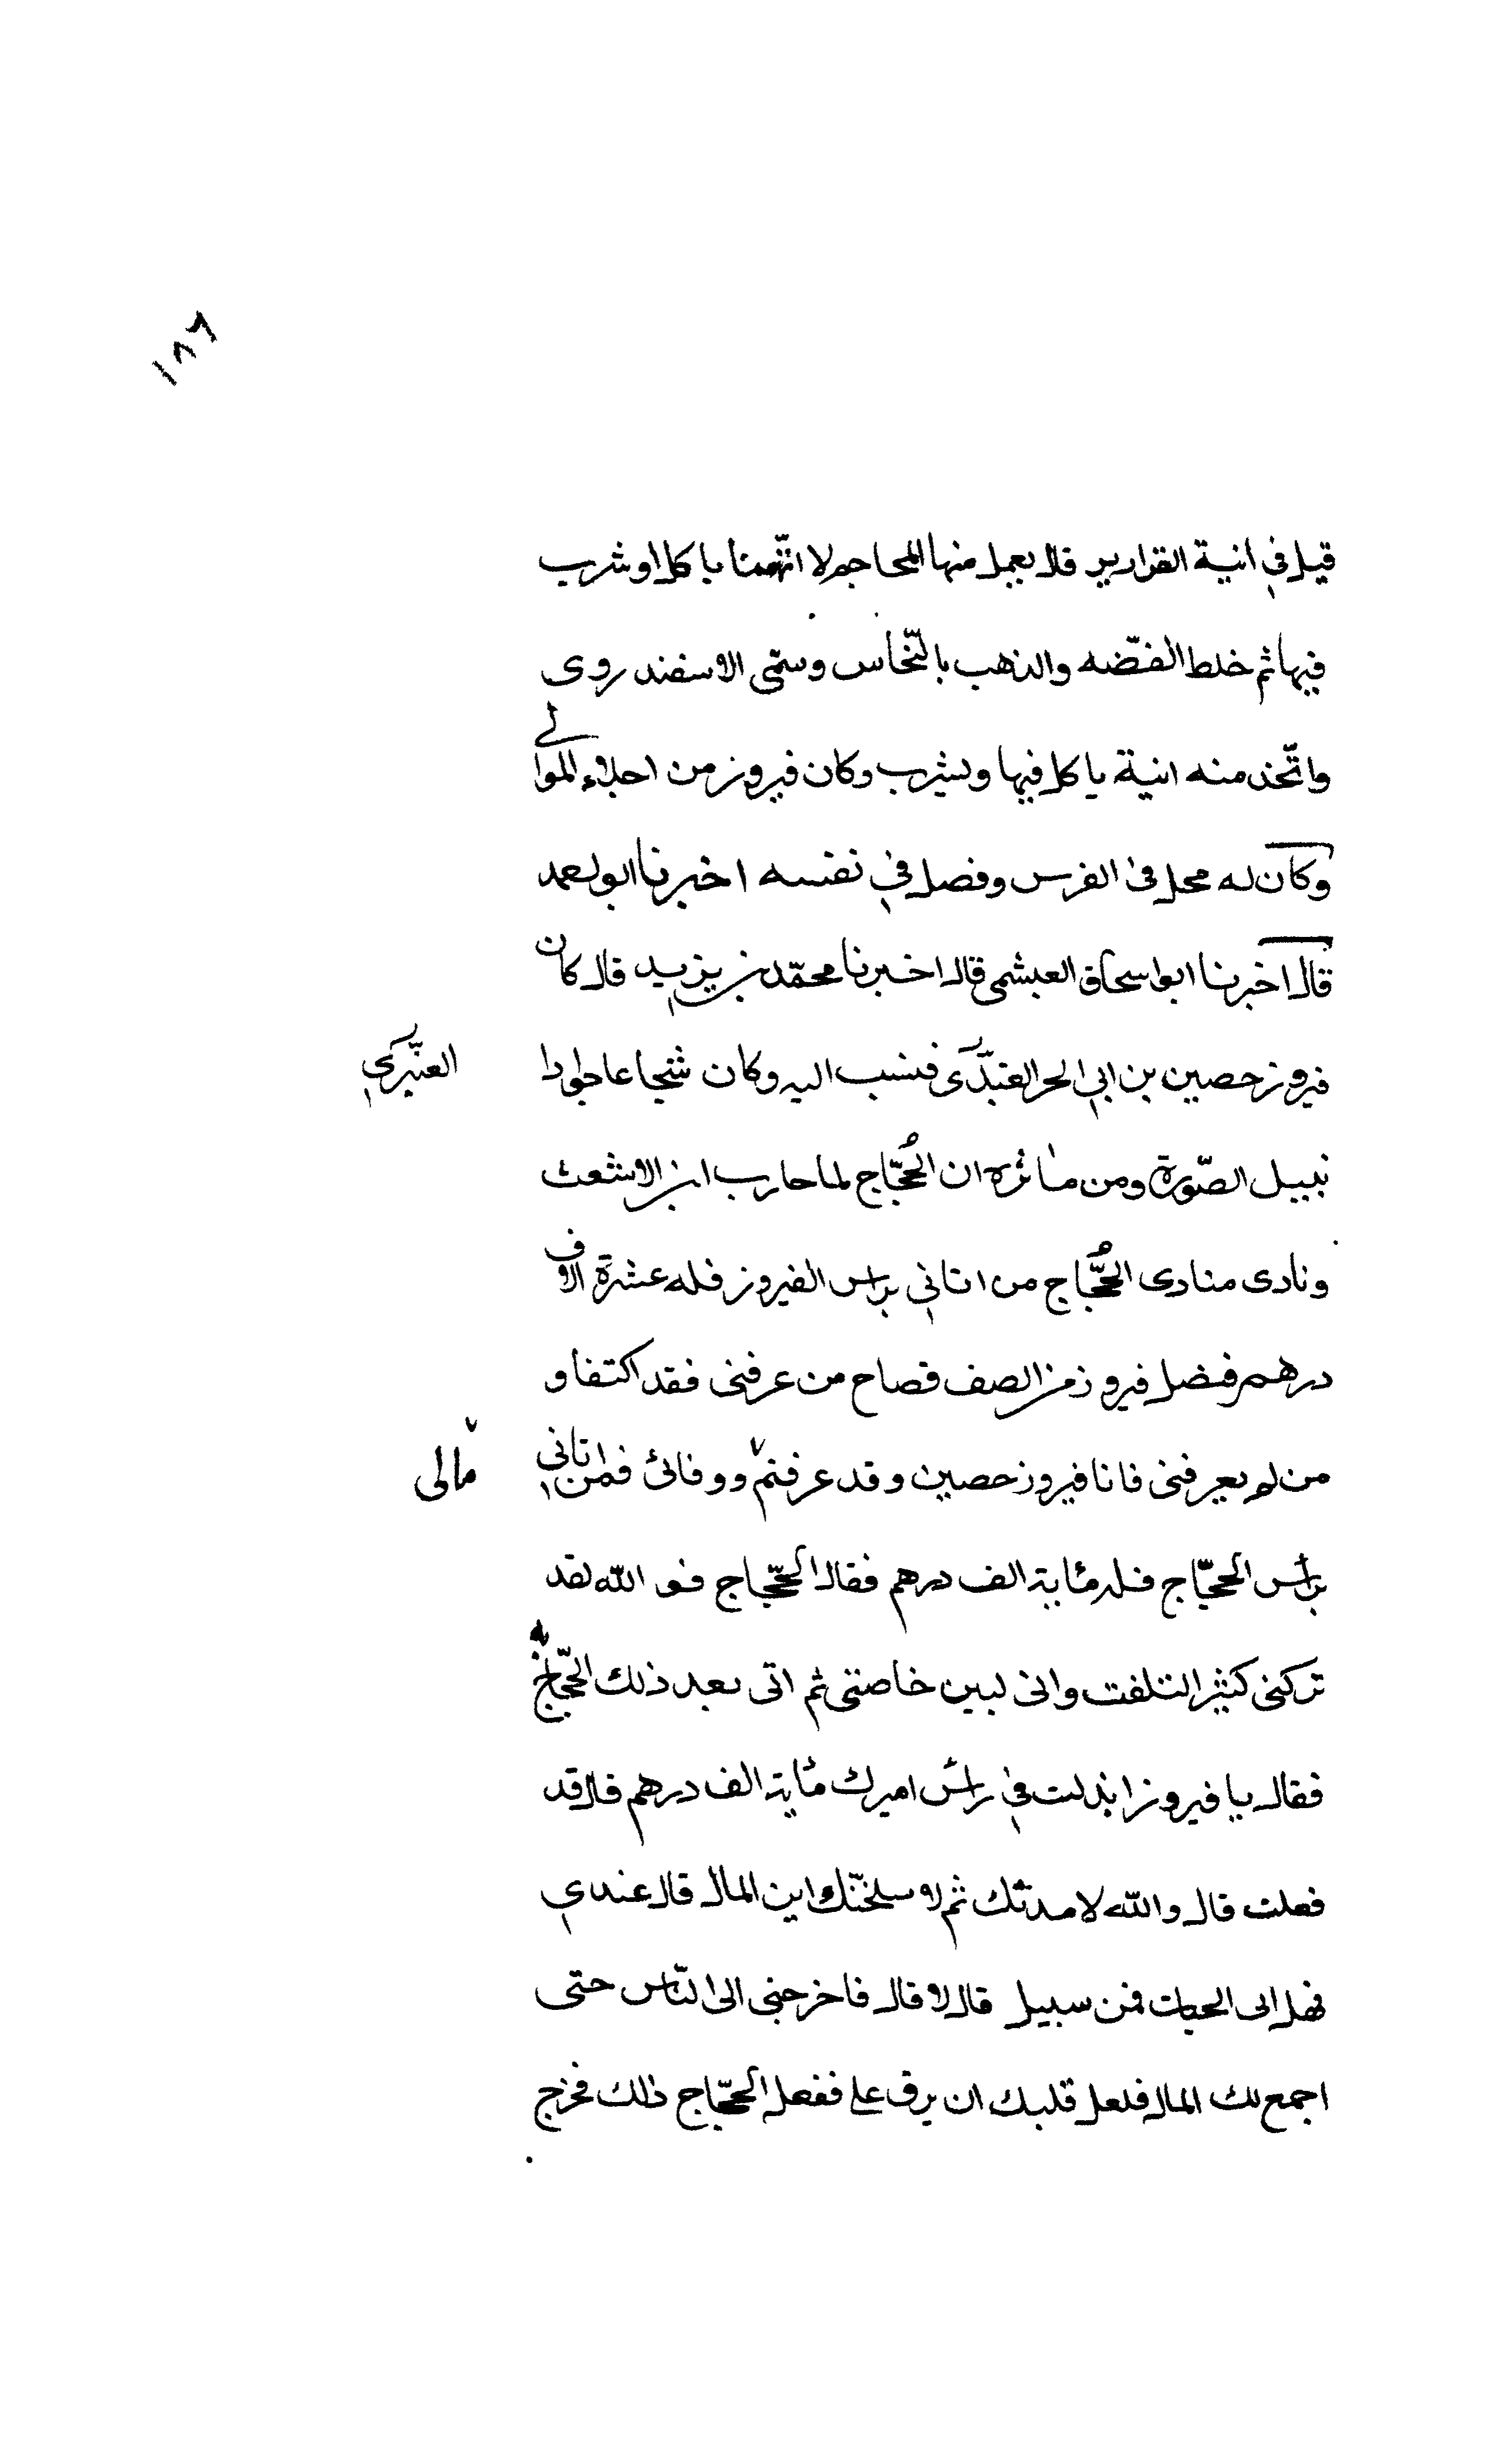 ١٨٦
قيل في انية القوارير قال يعمل منها المحاجم لا اتهمنا ياكل او شرب
فيها ثم خلط الفضّه والذهب بالنّحاس وسمّى الاسفندروى
واتّخذ منه انية ياكل فيها ويشرب وكان فيروز من اجلاء الموالي
وكان له محل فى الفرس وفضل في نفسه اخبرنا ابو احمد
قال اخبرنا ابو اسحاق العبشمى قال اخبرنا محمّد بن يزيد قال كان
فيروز حصين بن ابي الحر العنبرى فنسب اليه وكان شجاعا جوادا
العنبري
نبيل الصّورة ومن مائره ان الحجّاج لما حارب ابن الاشعث
ونادى منادى الحجّاج من اتاني براس الفيروز فله عشرة الاف
درهم ففصل فيروز من الصف فصاح من عرفنى فقد اكتفا و
من لم يعرفنى فانا فيروز حصين وقد عرفتم ووفائى فمن اتاني
مالى
براس الحجّاج فله مائة الف درهم فقال الحجّاج فو الله لقد
تركنى كثير التلفت وانى لبين خاصتى ثم اتى بعد ذلك الحجّاج به
فقال يا فيروز ابذلت في راس اميرك مائة الف درهم قال قد
فعلت قال والله لامدنّك ثم لاسلخنّك اين المال قال عندي
فهل الى الحيات من سبيل قال لا قال فاخرجنى الى النّاس حتى
اجمع لك المال فلعل قلبك ان يرق على ففعل الحجّاج ذلك فخرج